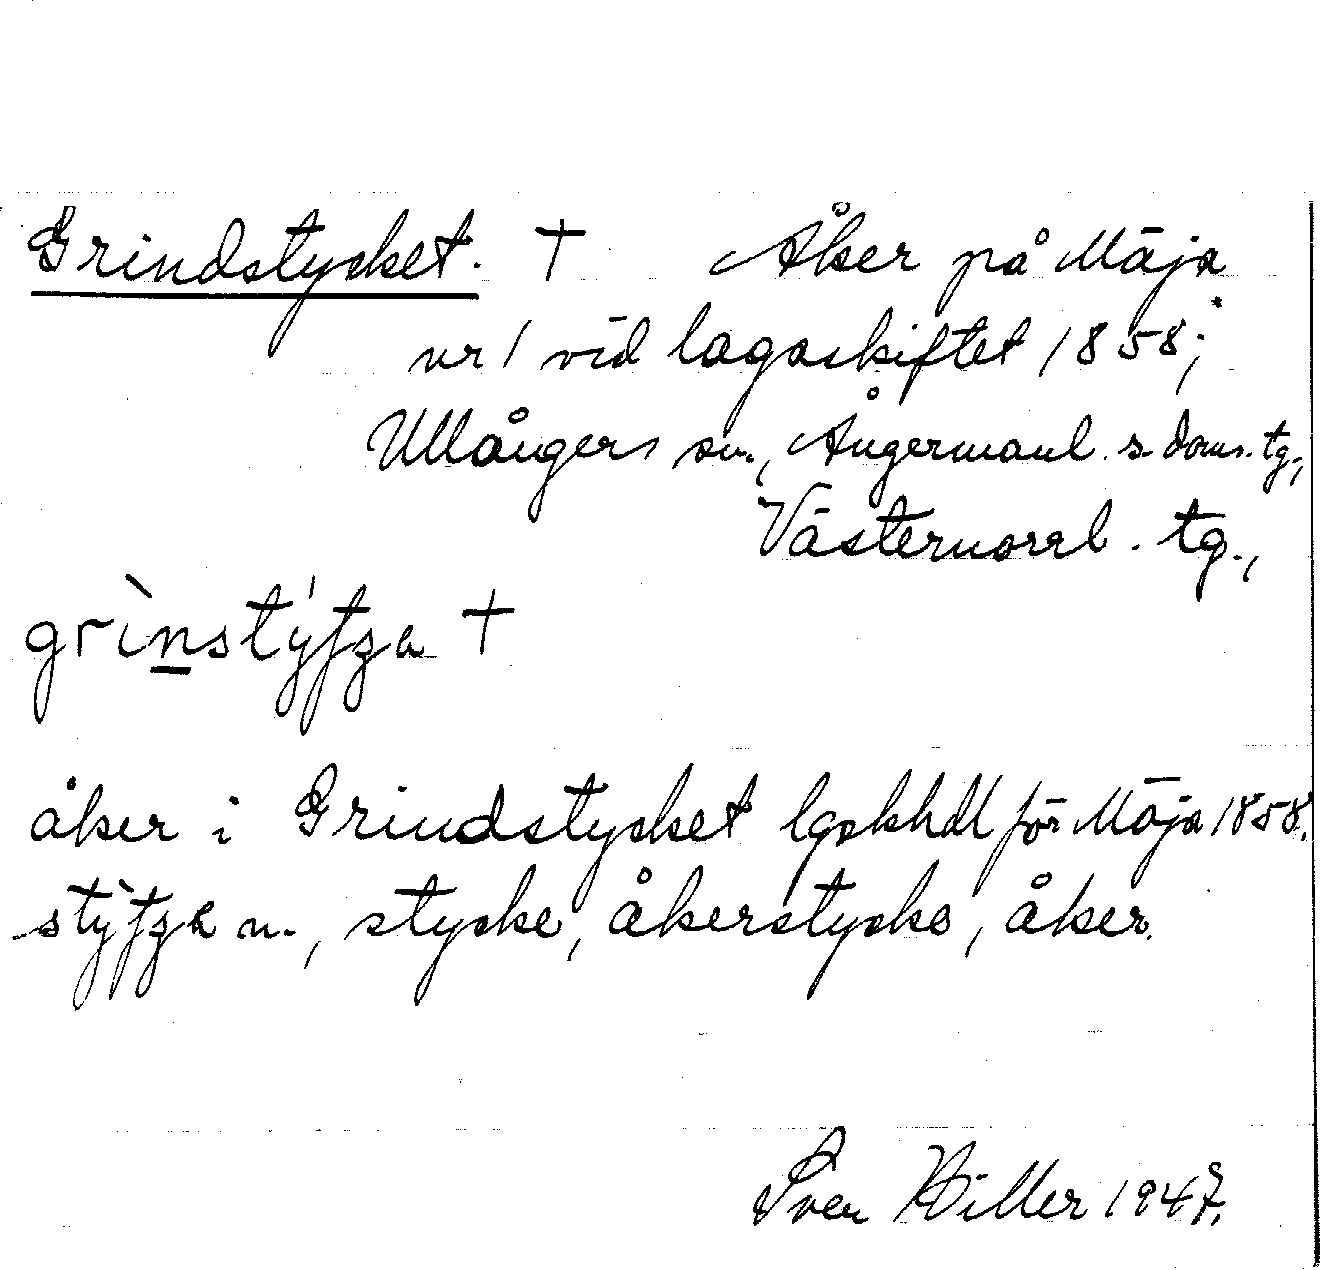 Grindstycket. † Åker på Mäja
nr 1 vid lagaskiftet 1858;
Ullångers sn., Ångermanl. s. doms. tg.,
Västernorrl. tg.,
grìnstýfza †
åker i Grindstycket lgskhdl för Mäja 1858.
stỳfza n., stycke, åkerstycke, åker.
Sven Hiller 1947.